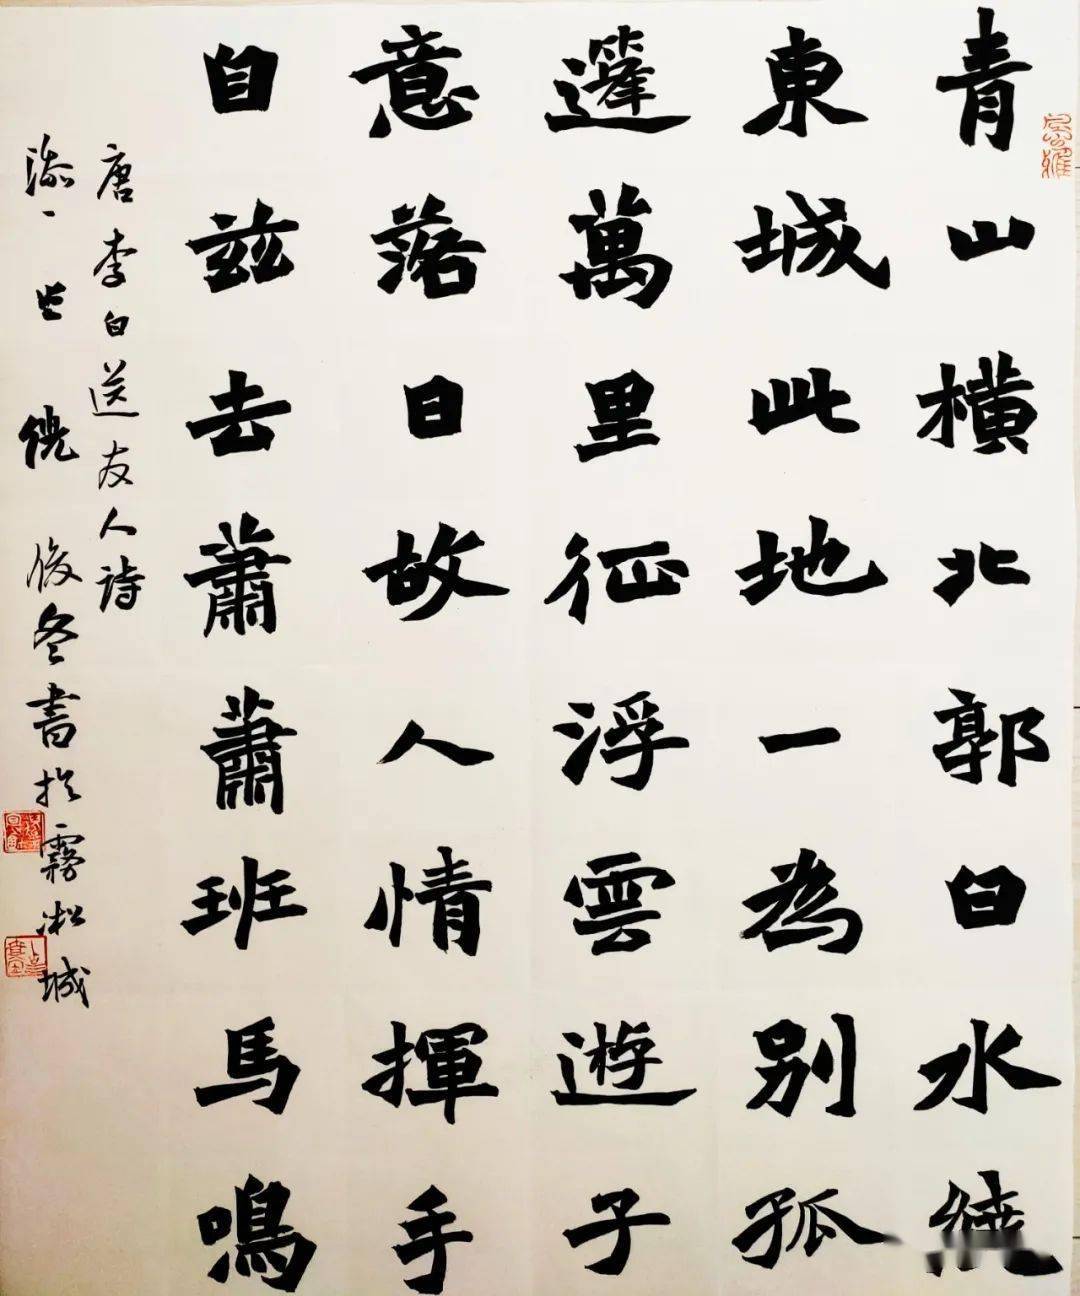 青山橫北郭白水繞
東城此地一為別孤
篷萬里征浮雲遊子
意落日故人情揮手
自茲去蕭蕭班馬鳴
唐李白送友人詩
俊冬書於霧凇城